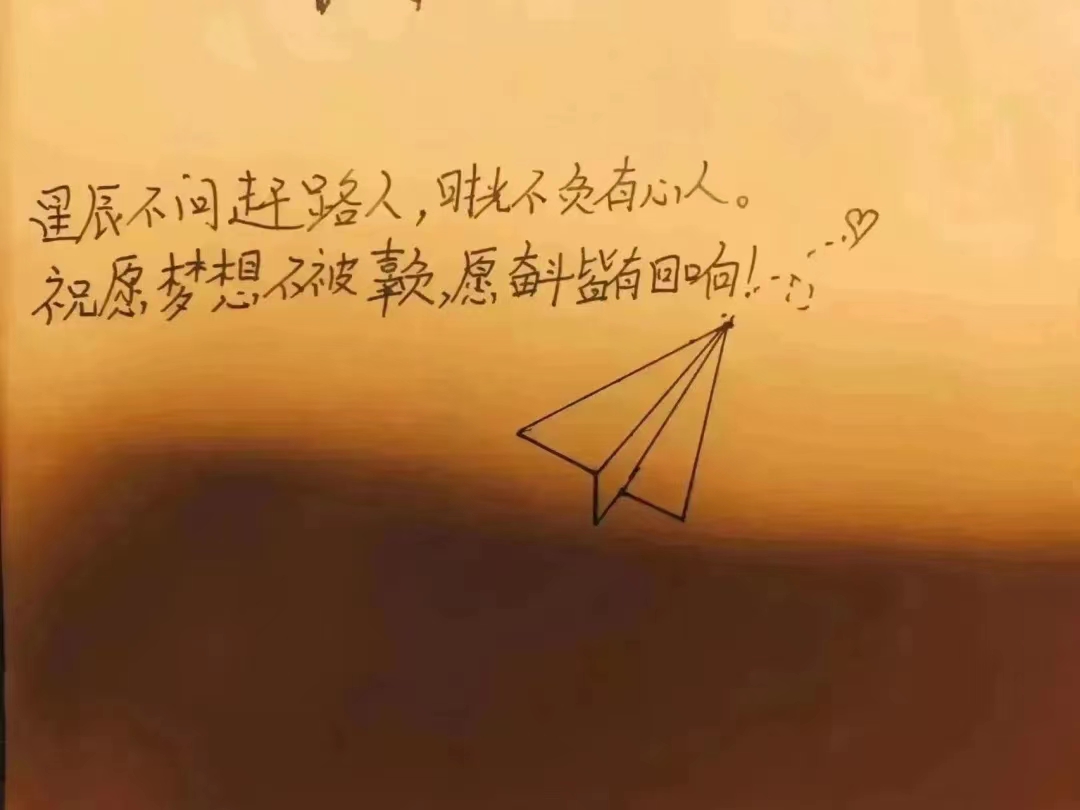 星辰不问赶路人，时光不负有心人。
祝愿梦想不被辜负，愿奋斗皆有回响！